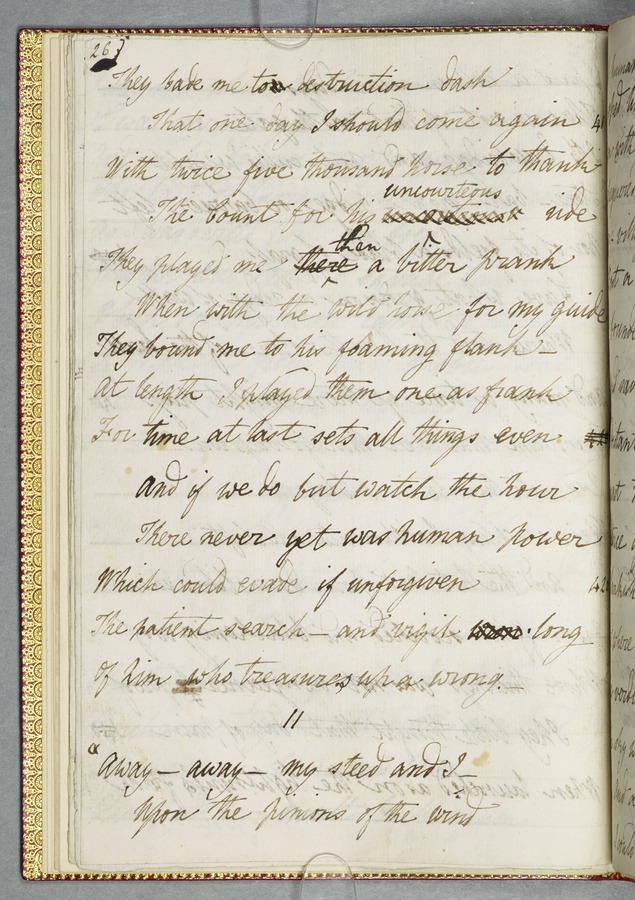 26
They bade me to destruction dash
That one day I should come again
With twice five thousand horse to thank
uncourteous
The Count for his ride
then
They played me there a bitter prank
When with the wild horse for my guide
They bound me to his foaming flank —
At length I played them one as frank
For time at last sets all things even
And if we do but watch the hour
There never yet was human power
Which could evade if unforgiven
The patient search — and vigil long
Of him who treasures up a wrong. —
11
"Away — away — my steed and I —
Upon the pinions of the wind